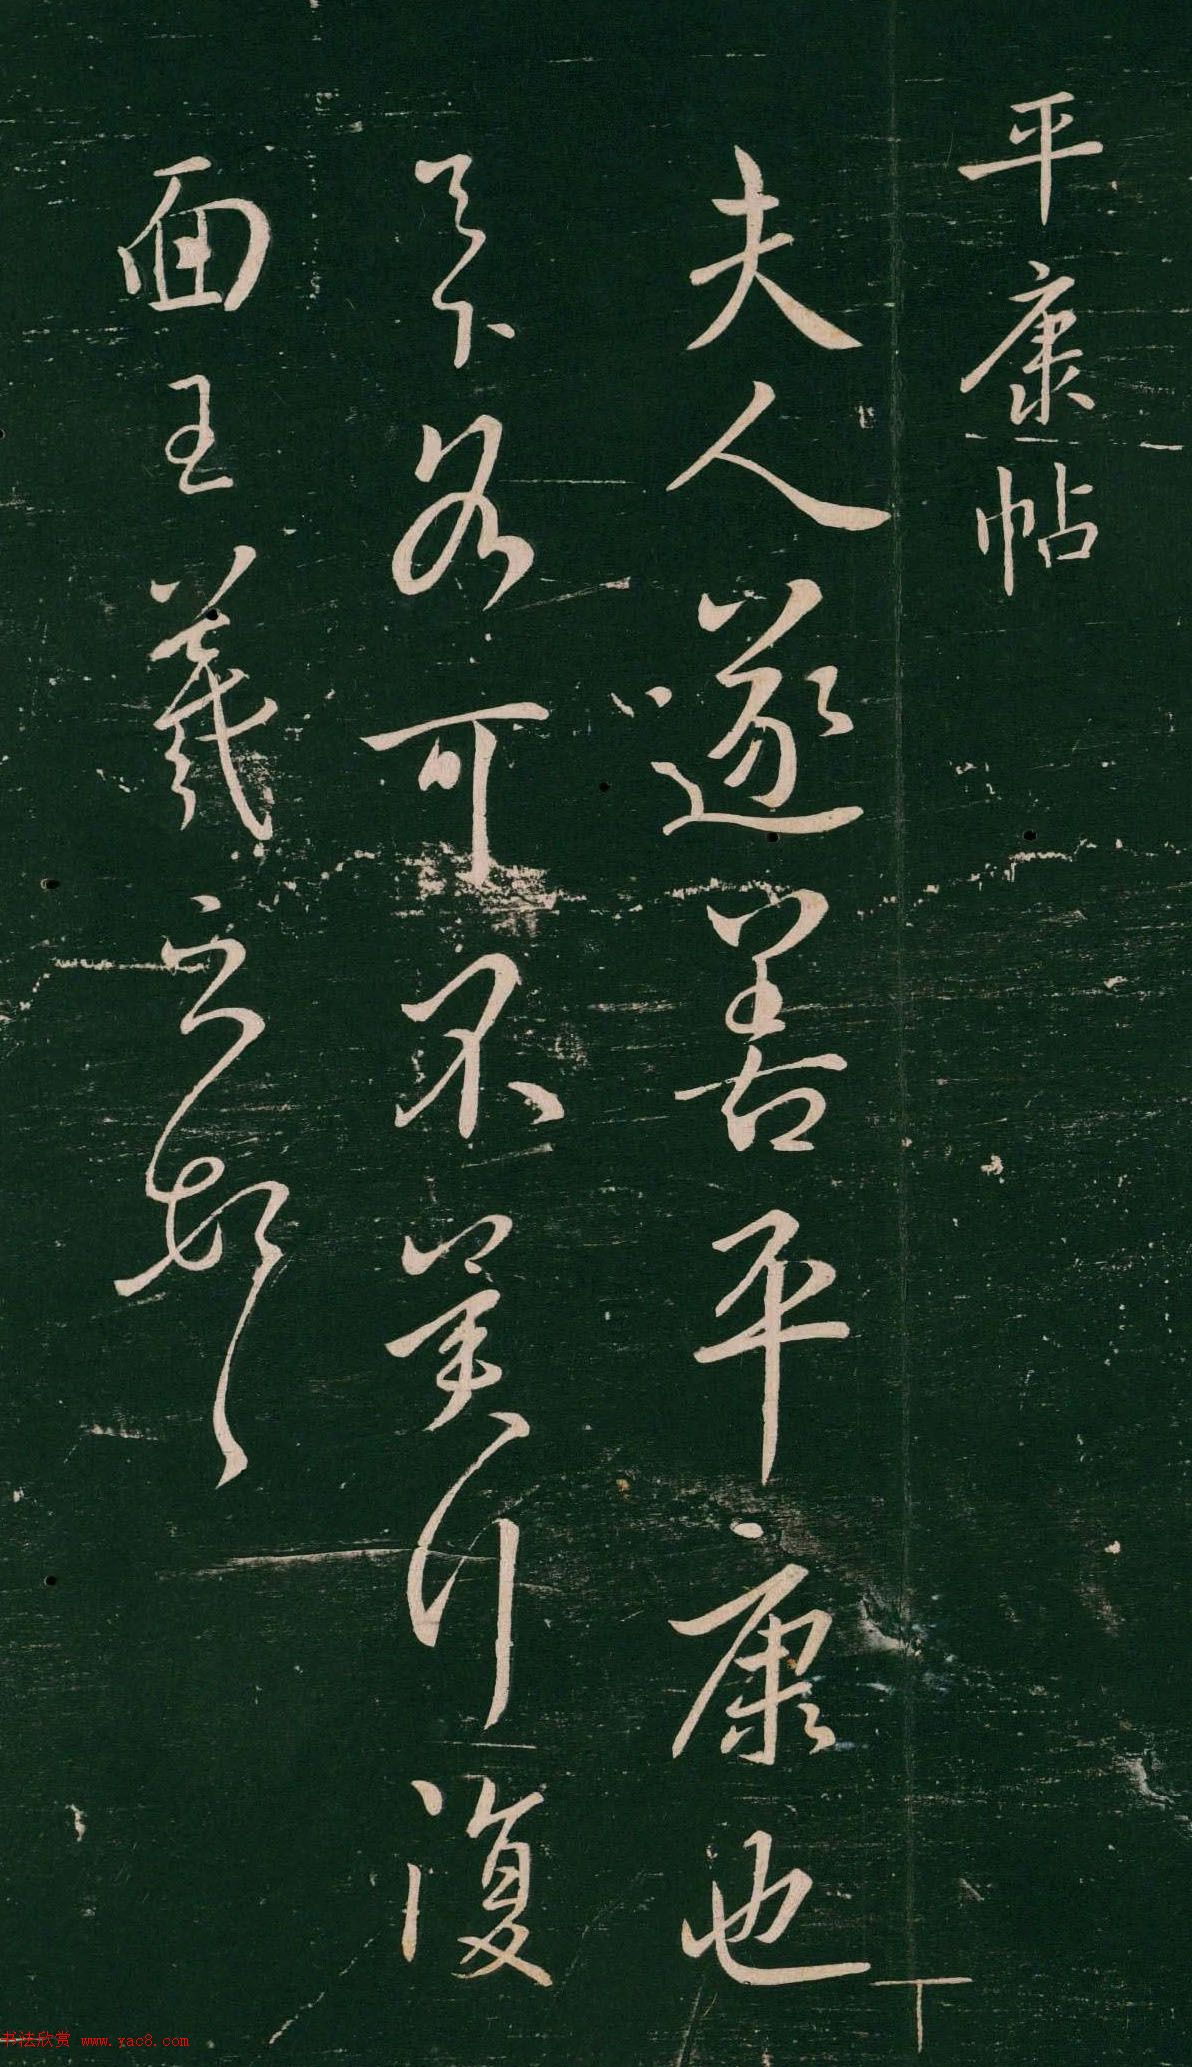 平康帖
夫人遂善平康也
足下各可不冀行復
面王羲之頓首
丁
书法欣赏 www.yac8.com